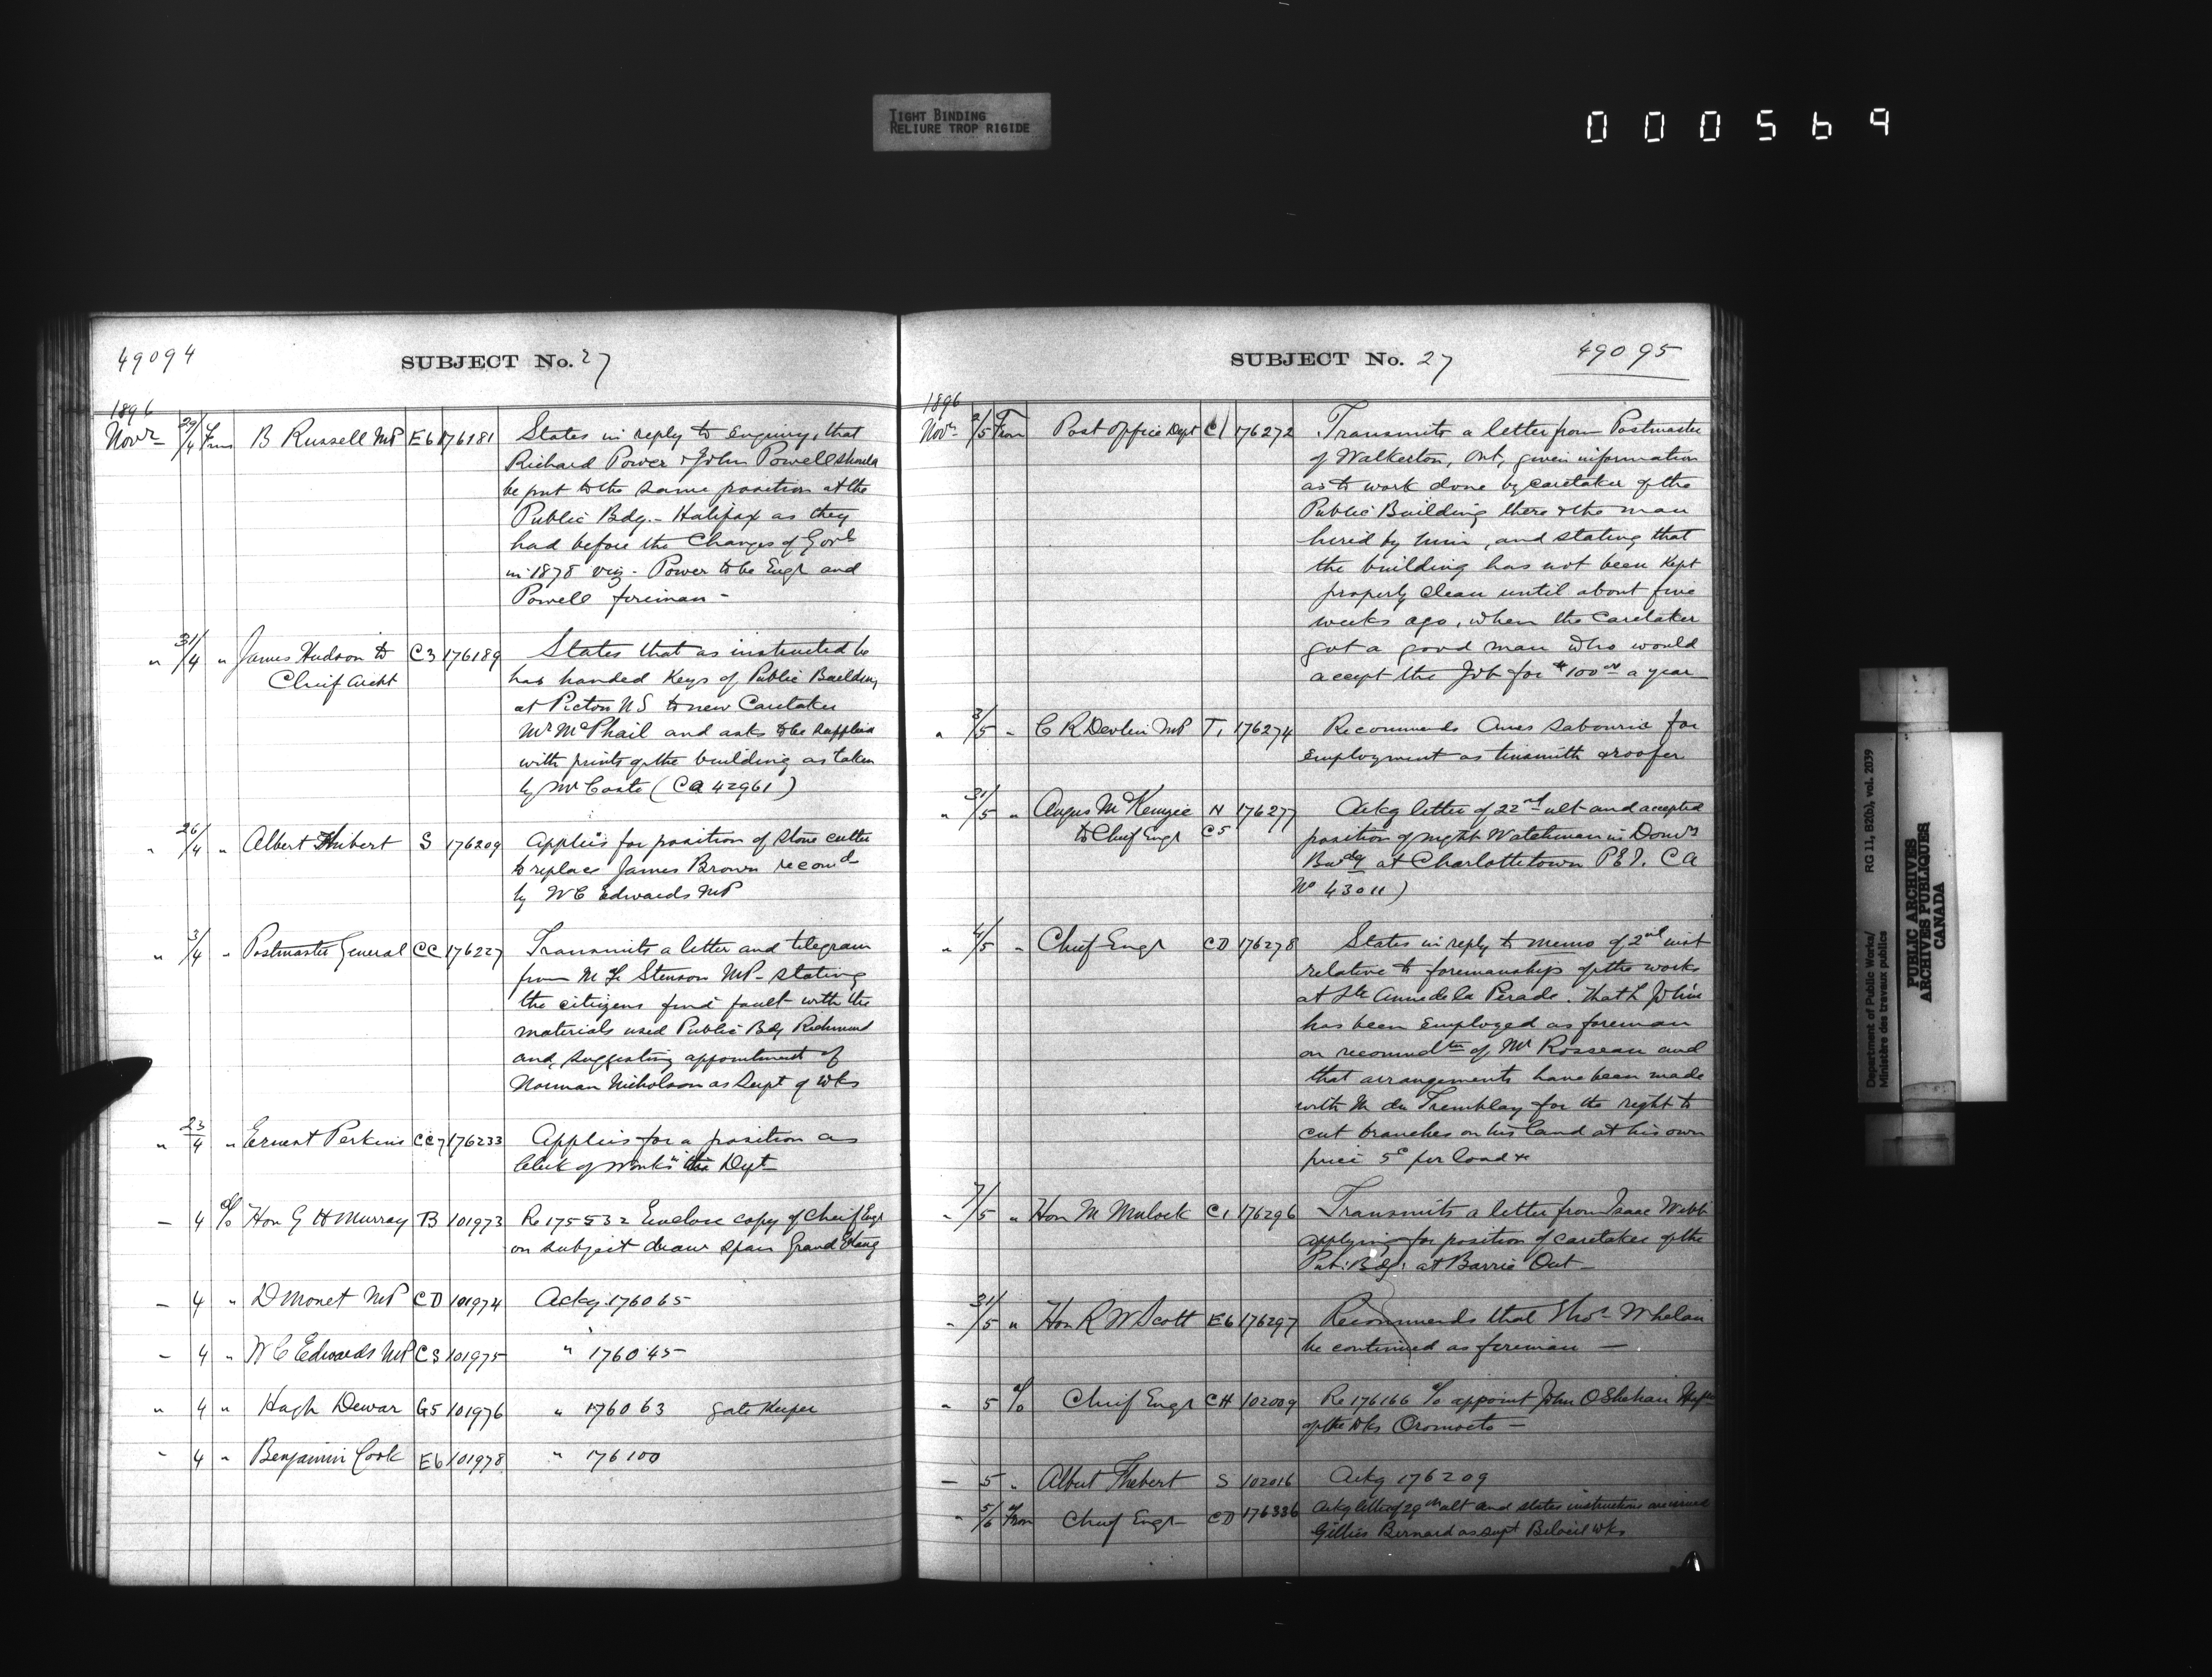 TIGHT BINDING
RELIURE TROP RIGIDE
000569
49094
SUBJECT No. 27
1896
Novr 29/4 From B Russell MP E6 176181 States in reply to enquiry, that
Richard Power & John Powell should
be put to the same position at the
Public Bdg. - Halifax as they
had before the Changes of Govt
in 1878 viz - Power to be Engr and
Powell foreman -
" 31/4 " James Hudson to C3 176189 States that as instructed he
Chief Archt has handed Keys of Public Building
at Pictou NS to new Caretaker
Mr McPhail and asks to be supplied
with prints of the building as taken
by Mr Coste (CA 42961)
" 26/4 " Albert Hubert S 176209 Applies for position of stone cutter
to replace James Brown recomd
by WC Edwards MP
" 3/4 " Postmaster General CC 176227 Transmits a letter and telegram
from M Stenson MP - stating
the citizens find fault with the
materials used Public Bdg Richmond
and suggesting appointment of
Norman Nicholson as Supt of Wks
" 23/4 " Ernest Perkins CC7 176233 Applies for a position as
Clerk of Works the Dept
- 4 % Hon G H Murray B 101973 Re 175532 Enclose copy of Chief Engr
on subject draw span Grand Etang
- 4 " D Monet MP CD 101974 Ackg 176065
- 4 " W C Edwards MP CS 101975 " 176045
" 4 " Hugh Dewar G5 101976 " 176063 Gate Keeper
" 4 " Benjamin Cook E6 101978 " 176100
SUBJECT No. 27
49095
1896
Novr 2/5 From Post Office Dept C1 176272 Transmits a letter from Postmaster
of Walkerton, Ont, given information
as to work done by caretaker of the
Public Building there & the man
hired by him, and stating that
the building has not been kept
properly clean until about five
weeks ago, when the caretaker
got a good man who would
accept the Job for $100.00 a year
" 3/5 " C R Devlin MP T1 176274 Recommends Sabourin for
employment as tinsmith & roofer
" 31/5 " Angus McKenzie N 176277 Ackg letter of 22nd ult and accepted
to Chief Engr C5 position of night Watchman in Domn
Bwdg at Charlottetown P.E.I. CA
No 43011)
" 4/5 " Chief Engr CD 176278 States in reply to memo of 2nd inst
relative to foremanships of the works
at Ste Anne de la Perade. that L
has been employed as foreman
on recomndtn of Mr Rosseau and
that arrangements have been made
with M du Tremblay for the right to
cut branches on his land at his own
price 5c per load &c
- 7/5 " Hon M Mulock C1 176296 Transmits a letter from Isaac Webb
applying for position of caretaker of the
Pub: Bdg: at Barrie Ont -
" 31/5 " Hon R W Scott E6 176297 Recommends that Thos Whelan
be continued as foreman -
" 5 % Chief Engr CH 102009 Re 176166 % appoint John OShehan
of the Wks Oromocto -
- 5 " Albert Thebert S 102016 Ackg 176209
" 5/6 From Chief Engr CD 176336 Ackg letter of 29th ult and states instructions are issued
Gillies Bernard as Supt Beloeil Wks
Department of Public Works/ RG 11, B2(b), vol. 2039
Ministère des travaux publics
PUBLIC ARCHIVES
ARCHIVES PUBLIQUES
CANADA